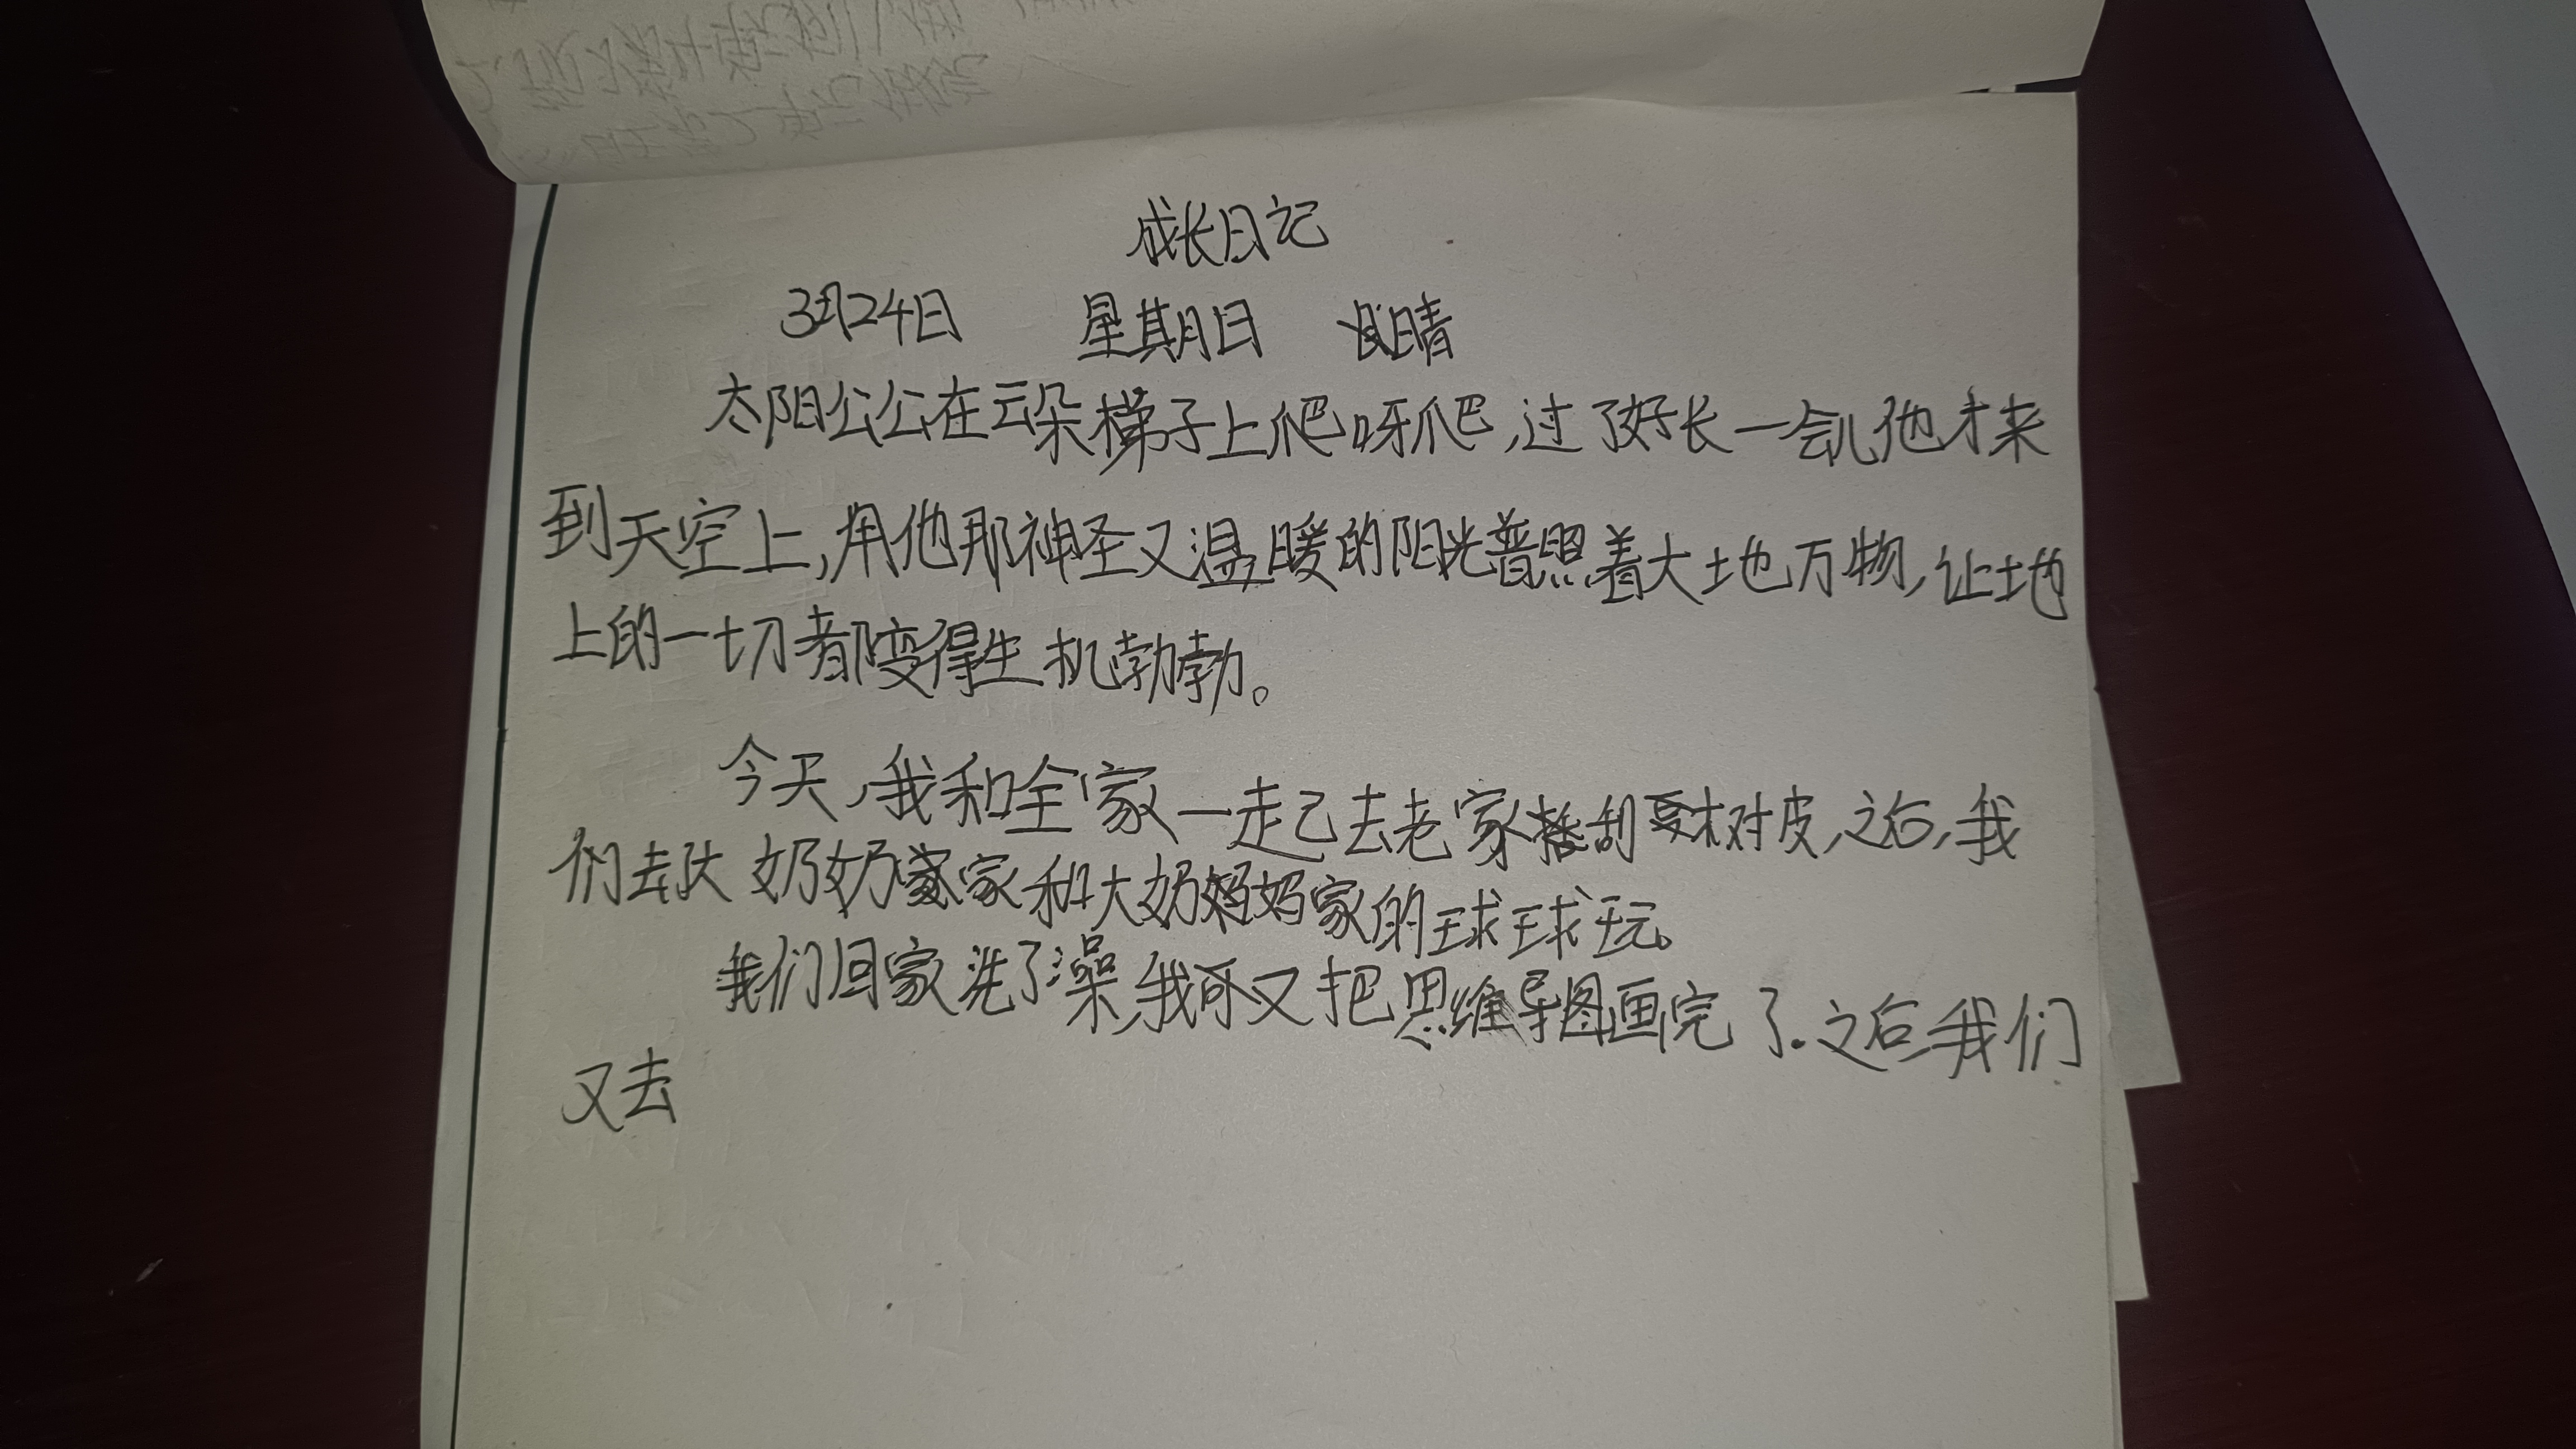 成长日记
3月24日 星期日 晴
太阳公公在云朵梯子上爬呀爬,过了好长一会儿他才来
到天空上,用他那神圣又温暖的阳光普照着大地万物,让地
上的一切都变得生机勃勃。
今天,我和全家一起去老家刮树皮,之后,我
们去大奶奶家和大奶妈家的球球玩。
我们回家洗了澡,我哥又把思维导图画完了.之后,我们
又去